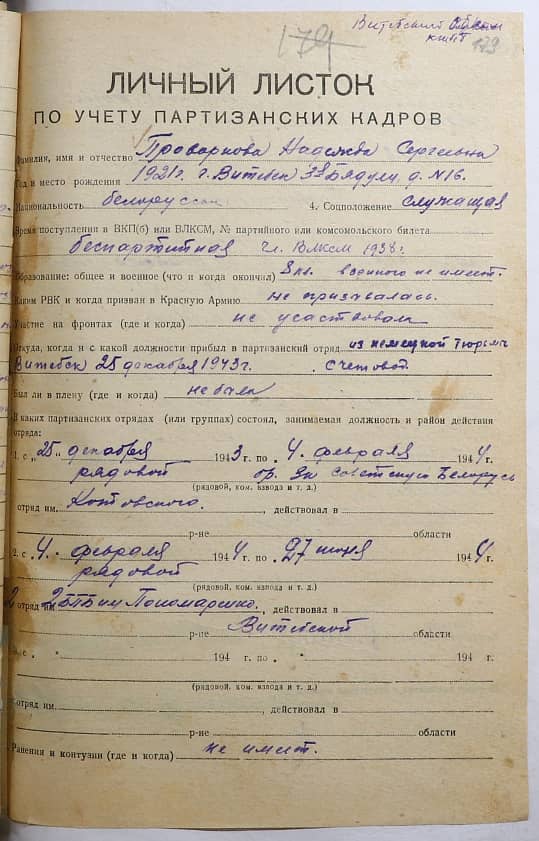 Витебский обком
КП(б)Б
174
179
ЛИЧНЫЙ ЛИСТОК
ПО УЧЕТУ ПАРТИЗАНСКИХ КАДРОВ
Фамилия, имя и отчество Проваркова Надежда Сергеевна
Год и место рождения 1921 г. г. Витебск Бядули д. N16.
Национальность белорусска 4. Соцположение служащая
Время поступления в ВКП(б) или ВЛКСМ, № партийного или комсомольского билета
беспартийная чл. ВЛКСМ 1938 г.
Образование: общее и военное (что и когда окончил) 8 кл. военного не имеет.
Каким РВК и когда призван в Красную Армию не призывалась.
Участие на фронтах (где и когда) не участвовал
Откуда, когда и с какой должности прибыл в партизанский отряд из немецкой тюрьмы
Витебск 25 декабря 1943 г. счетовод.
Был ли в плену (где и когда) не была
В каких партизанских отрядах (или группах) состоял, занимаемая должность и район действия
отряда:
1. с „25" декабря 1943 г. по 4. февраля 1944 г.
рядовой бр. За Советскую Беларусь
(рядовой, ком. взвода и т. д.)
отряд им. Котовского. , действовал в
р-не области
2. с 4. февраля 1944 г. по 27 июня 1944 г.
рядовой
(рядовой, ком. взвода и т. д.)
2 отряд им. 2 БПБ им Пономаренко. , действовал в
р-не Витебской области
3. с „ " 194 г. по " 194 г.
(рядовой, ком. взвода и т. д.)
Отряд им. , действовал в
р-не области
Ранения и контузии (где и когда) не имеет.